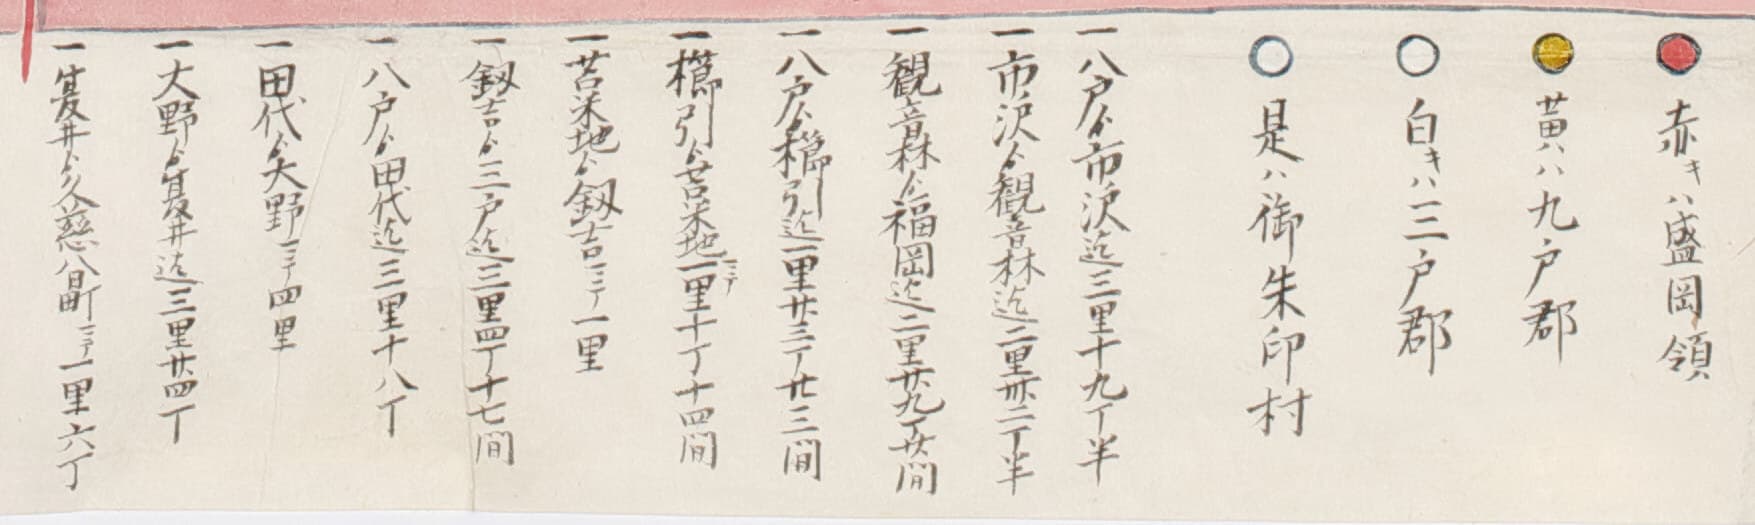 赤キハ盛岡領
黄ハ九戸郡
白キハ三戸郡
是ハ御朱印村
一八戸ゟ市沢迄三里十九丁半
一市沢ゟ観音林迄二里卅二丁半
一観音林ゟ福岡迄二里廿九丁廿間
一八戸ゟ櫛引迄一里廿三丁廿三間
一櫛引ゟ苫米地一里十丁十四間
一苫米地ゟ釼吉一里
一釼吉ゟ三戸迄三里四丁十七間
一八戸ゟ田代迄三里十八丁
一田代ゟ大野四里
一大野ゟ夏井迄三里廿四丁
一夏井ゟ久慈八日町一里六丁